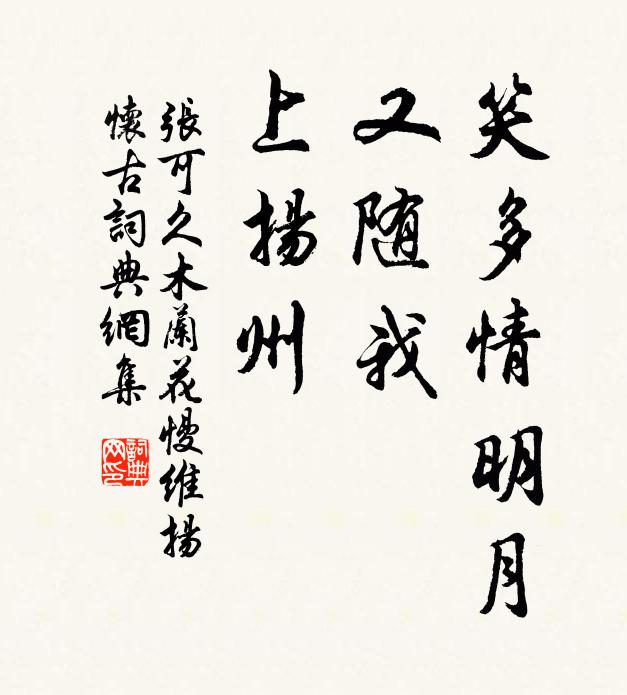 笑多情明月
又随我
上揚州
張可久木蘭花慢維揚
懷古詞典網集
詞典網印